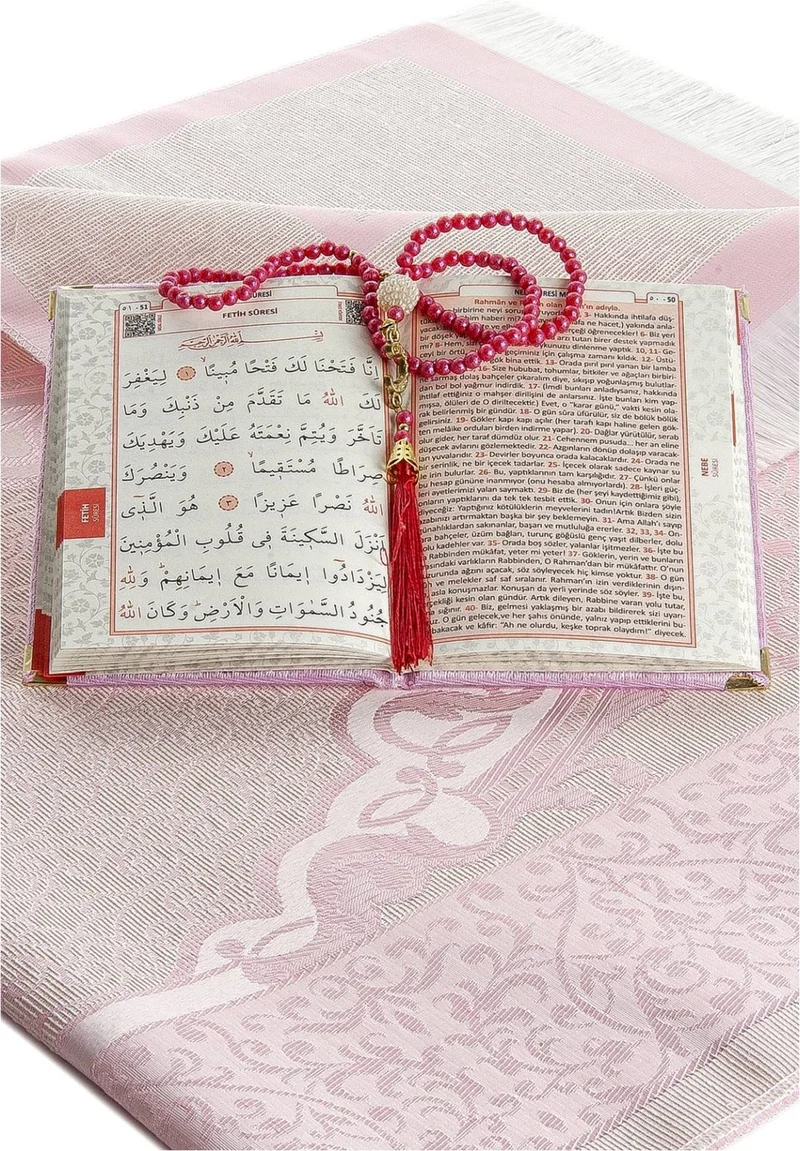 ٥١ - 51
FETİH SÛRESİ
إِنَّا فَتَحْنَا لَكَ فَتْحًا مُب۪ينًا ١ لِيَغْفِرَ
لَكَ اللّٰهُ مَا تَقَدَّمَ مِنْ ذَنْبِكَ وَمَا
تَاَخَّرَ وَيُتِمَّ نِعْمَتَهُ عَلَيْكَ وَيَهْدِيَكَ
صِرَاطًا مُسْتَق۪يمًا ٢ وَيَنْصُرَكَ
اللّٰهُ نَصْرًا عَز۪يزًا ٣ هُوَ الَّذ۪ٓي
اَنْزَلَ السَّك۪ينَةَ ف۪ي قُلُوبِ الْمُؤْمِن۪ينَ
لِيَزْدَادُٓوا ا۪يمَانًا مَعَ ا۪يمَانِهِمْ وَلِلّٰهِ
جُنُودُ السَّمٰوَاتِ وَالْاَرْضِ وَكَانَ اللّٰهُ
FETİH
SÛRESİ
٥٠ - 50
Rahmân ve adıyla.
birbirine neyi 3- Hakkında ihtilafa düş-
öğrenecekler! 6- Biz yeri
arzı tutan birer destek yapmadık
kunuzu dinlenme yaptık. 10, 11- Ge-
geçiminiz için çalışma zamanı kıldık. 12- Üstü-
gök bina ettik. 13- Orada pırıl pırıl yanan bir lamba
16- Size hububat, tohumlar, bitkiler ve ağaçları birbiri-
sarmaş dolaş bahçeler çıkaralım diye, sıkışıp yoğunlaşmış bulutlar-
dan bol bol yağmur indirdik. 17- (İmdi bunları adaysanız, hakkında
ihtilaf ettiğiniz o mahşer dirilişini de anlarsınız. İşte bunları kim yap-
mışsa, ölüleri de O diriltecektir.) Evet, o "karar günü," vakti kesin ola-
rak belirlenmiş bir gündür. 18- O gün sûra üfürülür, siz de bölük bölük
gelirsiniz. 19- Gökler kapı kapı açılır (her tarafı kapı haline gelen gök-
ten melâike orduları birden indirme yapar). 20- Dağlar yürütülür, serab
olur gider, her taraf dümdüz olur. 21- Cehennem pusuda... her an eline
düşecek avlarını gözlemektedir. 22- Azgınların dönüp dolaşıp varacak-
ları yuvalarıdır. 23- Devirler boyunca orada kalacaklardır. 24- Orada ne
bir serinlik, ne bir içecek tadarlar. 25- İçecek olarak sadece kaynar su
ve irin bulurlar. 26- Bu, yaptıklarının tam karşılığıdır. 27- Çünkü onlar
bu hesap gününe inanmıyor (onu hesaba almıyorlardı). 28- İşleri güç-
leri ayetlerimizi yalan saymaktı. 29- Biz de (her şeyi kaydettiğimiz gibi),
onların yaptıklarını da tek tek tesbit ettik. 30- Onun için onlara şöyle
deneceğiz: Yaptığınız kötülüklerin meyvelerini tadın! Artık Bizden sizin
azabınızı artırmaktan başka bir şey beklemeyin. 31- Ama Allah'ı sayıp
günahlardan sakınanlar, başarı ve mutluluğa ererler. 32, 33, 34- On-
bahçeler, üzüm bağları, turunç göğüslü genç yaşıt dilberler, dolu
dolu kadehler var. 35- Orada boş sözler, yalanlar işitmezler. 36- İşte bu
Rabbinden mükâfat, yeter mi yeter! 37- Göklerin, yerin ve bunların
arasındaki varlıkların Rabbinden, O Rahman'dan bir mükâfattır. O'nun
huzurunda ağzını açacak, söz söyleyecek hiç kimse yoktur. 38- O gün
ve melekler saf saf sıralanır. Rahman'ın izin verdiklerinin dışın-
asla konuşmazlar. Konuşan da yerli yerinde söz söyler. 39- İşte bu,
gerçekliği kesin olan gündür. Artık dileyen, Rabbine varan yolu tutar,
sığınır. 40- Biz, gelmesi yaklaşmış bir azabı bildirerek sizi uyarı-
yoruz. O gün gelecek, ve her şahıs önünde, yalnız yapıp ettiklerini bu-
bakacak ve kâfir: "Ah ne olurdu, keşke toprak olaydım!" diyecek.
NEBE
SÛRESİ